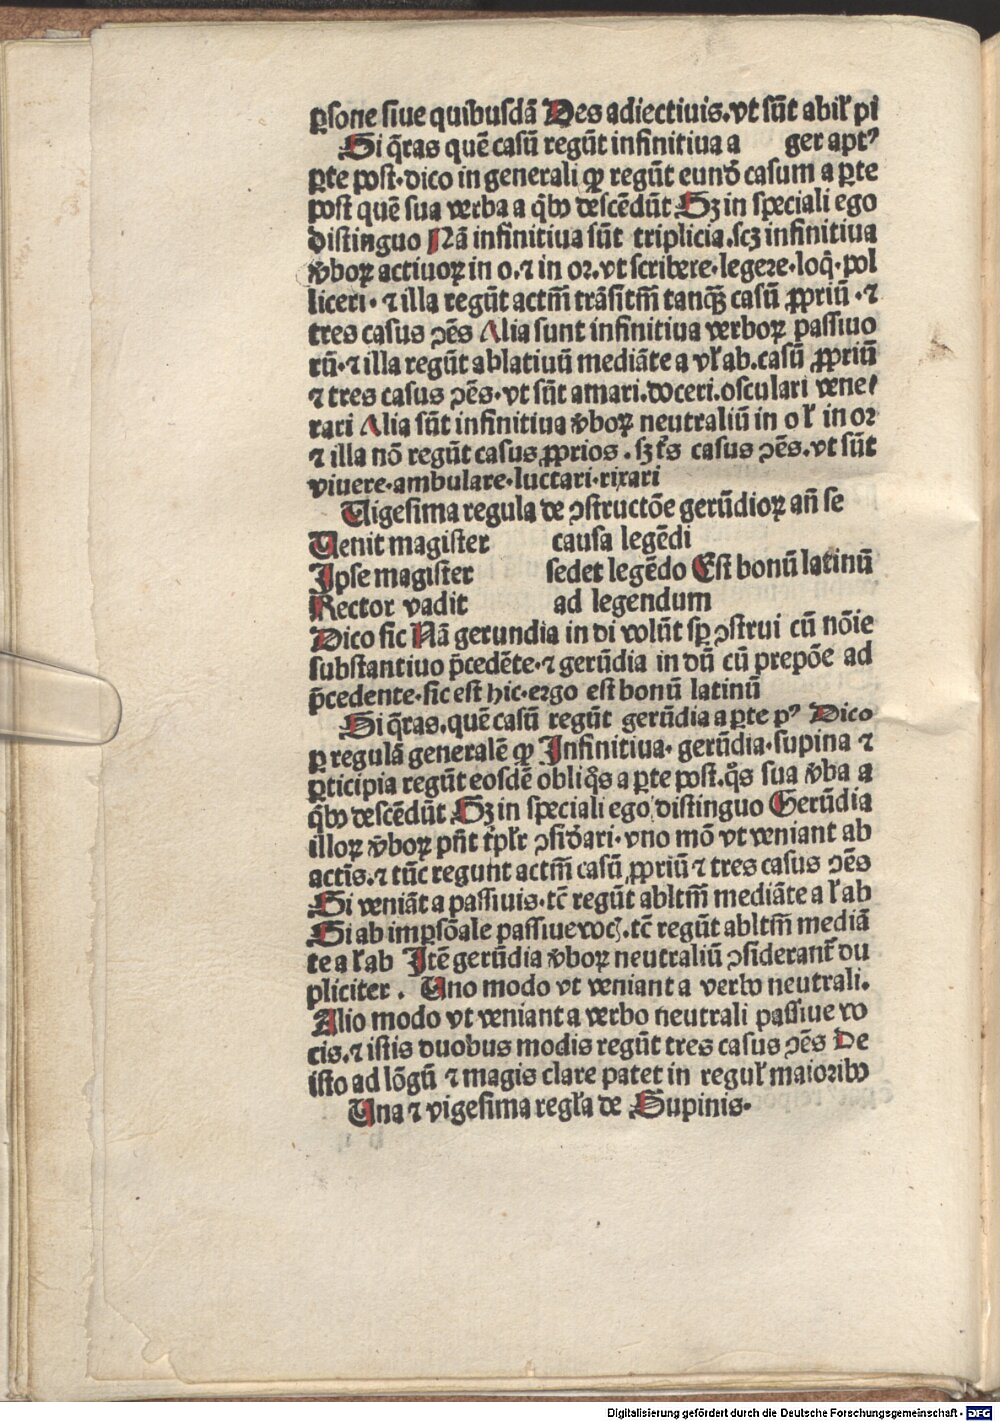 ꝑsone siue quibusdā Des adiectiuis.vt sūt abil̛ pi
Si q̄ras quē casū regūt infinitiua a ger aptꝰ
ꝑte post·dico in generali ꝙ regūt eundē casum a ꝑte
post quē sua verba a q̄bꝰ descēdūt Sꝫ in speciali ego
distinguo Nā infinitiua sūt triplicia.scꝫ infinitiua
v̄boꝝ actiuoꝝ in o.⁊ in or.vt scribere·legere·loq̄·pol
liceri·⁊ illa regūt actm̄ trāsitm̄ tanqꝫ casū ꝓpriū·⁊
tres casus ꝯēs Alia sunt infinitiua verboꝝ passiuo
rū·⁊ illa regūt ablatiuū mediāte a vl̛ ab.casū ꝓpriū
⁊ tres casus ꝯēs·vt sūt amari.doceri.osculari vene⸗
rari Alia sūt infinitiua v̄boꝝ neutraliū in o l̛ in or
⁊ illa nō regūt casus ꝓprios.sꝫ tr̄s casus ꝯēs.vt sūt
viuere·ambulare·luctari·rixari
Uigesima regula de ꝯstructōe gerūdioꝝ an̄ se
Uenit magister causa legēdi
Ipse magister sedet legēdo Est bonū latinū
Rector vadit ad legendum
Dico sic Nā gerundia in di volūt sꝑ ꝯstrui cū nōie
substantiuo p̄cedēte·⁊ gerūdia in dū cū prepōe ad
p̄cedente·sic est hic·ergo est bonū latinū
Si q̄ras.quē casū regūt gerūdia a ꝑte pꝰ Dico
ꝑ regulā generalē ꝙ Infinitiua·gerūdia·supina ⁊
ꝑticipia regūt eosdē obliq̄s a ꝑte post.q̄s sua v̄ba a
q̄bꝰ descēdūt Sꝫ in speciali ego distinguo Gerūdia
illoꝝ v̄boꝝ pn̄t tr̄pl̛r ꝯsid̄ari·vno mō vt veniant ab
actīs.⁊ tūc regunt actm̄ casū ꝓpriū ⁊ tres casus ꝯēs
Si veniāt a passiuis·tc̄ regūt abltm̄ mediāte a l̛ ab
Si ab imꝑsōale passiue voc̄.tc̄ regūt abltm̄ mediā
te a l̛ ab Itē gerūdia v̄boꝝ neutraliū ꝯsiderant̄ du
pliciter. Uno modo vt veniant a verbo neutrali.
Alio modo vt veniant a verbo neutrali passiue vo
cis.⁊ istis duobus modis regūt tres casus ꝯēs De
isto ad lōgū ⁊ magis clare patet in regul̛ maioribꝰ
Una ⁊ vigesima regl̛a de Supinis·
Digitalisierung gefördert durch die Deutsche Forschungsgemeinschaft - DFG